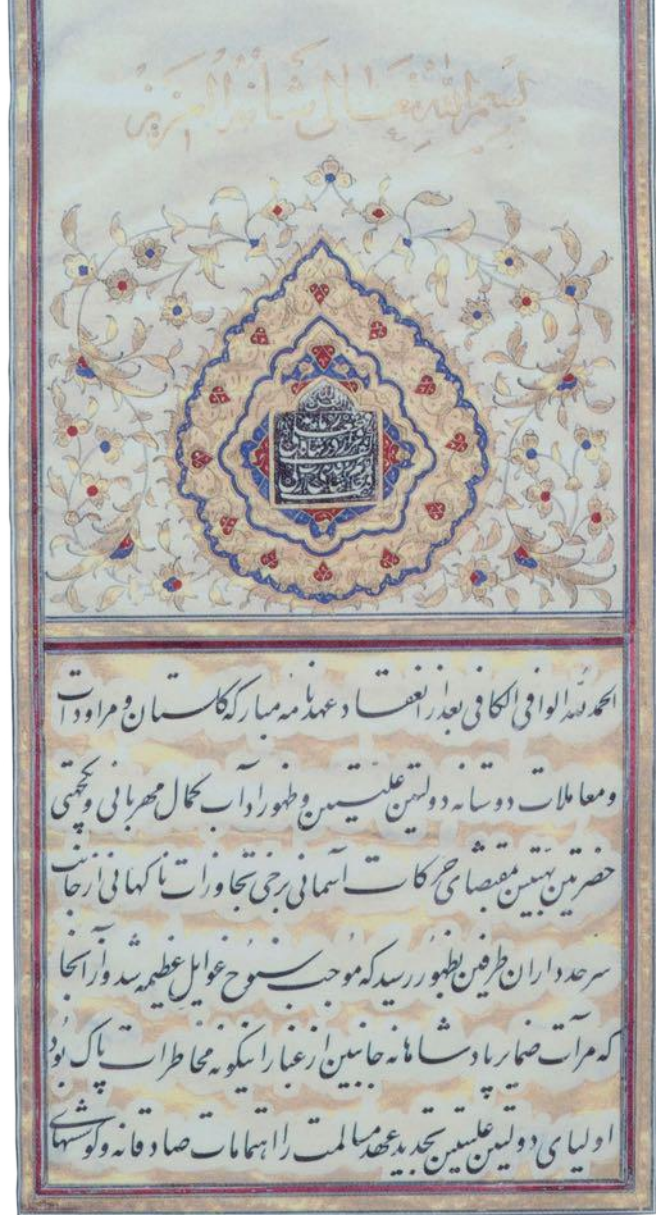 بسم الله تعالی شأنه العزیز
الحمد لله الوافی الکافی بعد از انعقاد عهدنامه مبارکه کلستان و مراودات
ومعاملات دوستانه دولتین علیتین وظهور آداب کمال مهربانی ویکجهتی
حضرتین بهیتین مقتضای حرکات آسمانی برخی تجاوزات ناکهانی از جانب
سرحدداران طرفین بظهور رسید که موجب سنوح غوایل عظیمه شد و از آنجا
که مرآت ضمایر پادشاهانه جانبین از غبار اینکونه مخاطرات پاک بود
اولیای دولتین علیتین تجدید عهد مسالمت را اهتمامات صادقانه وکوششهای